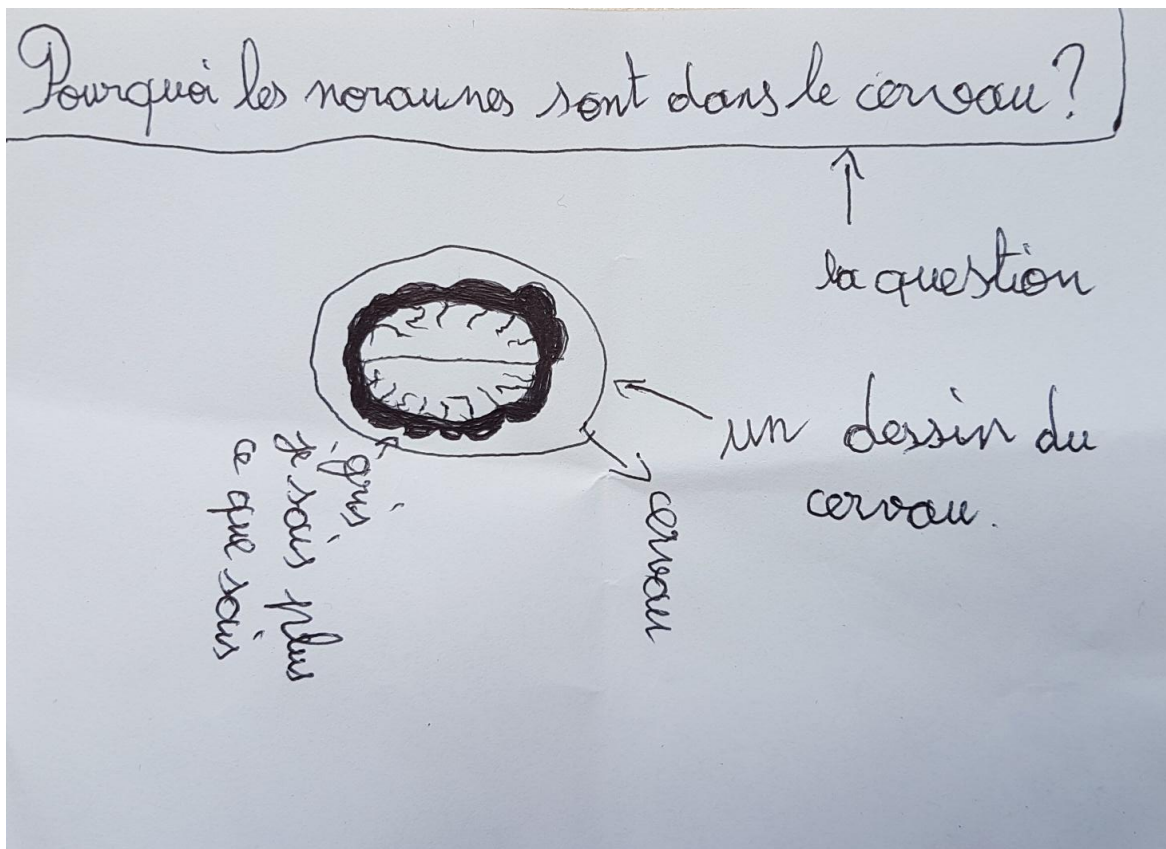 Pourquoi les noraunes sont dans le cerveau?
la question
un dessin du
cervau.
cervau
gris
je sais plus
ce que sais